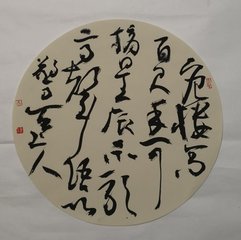 危樓高
百尺手可
摘星辰不敢
高聲語恐
驚天上人